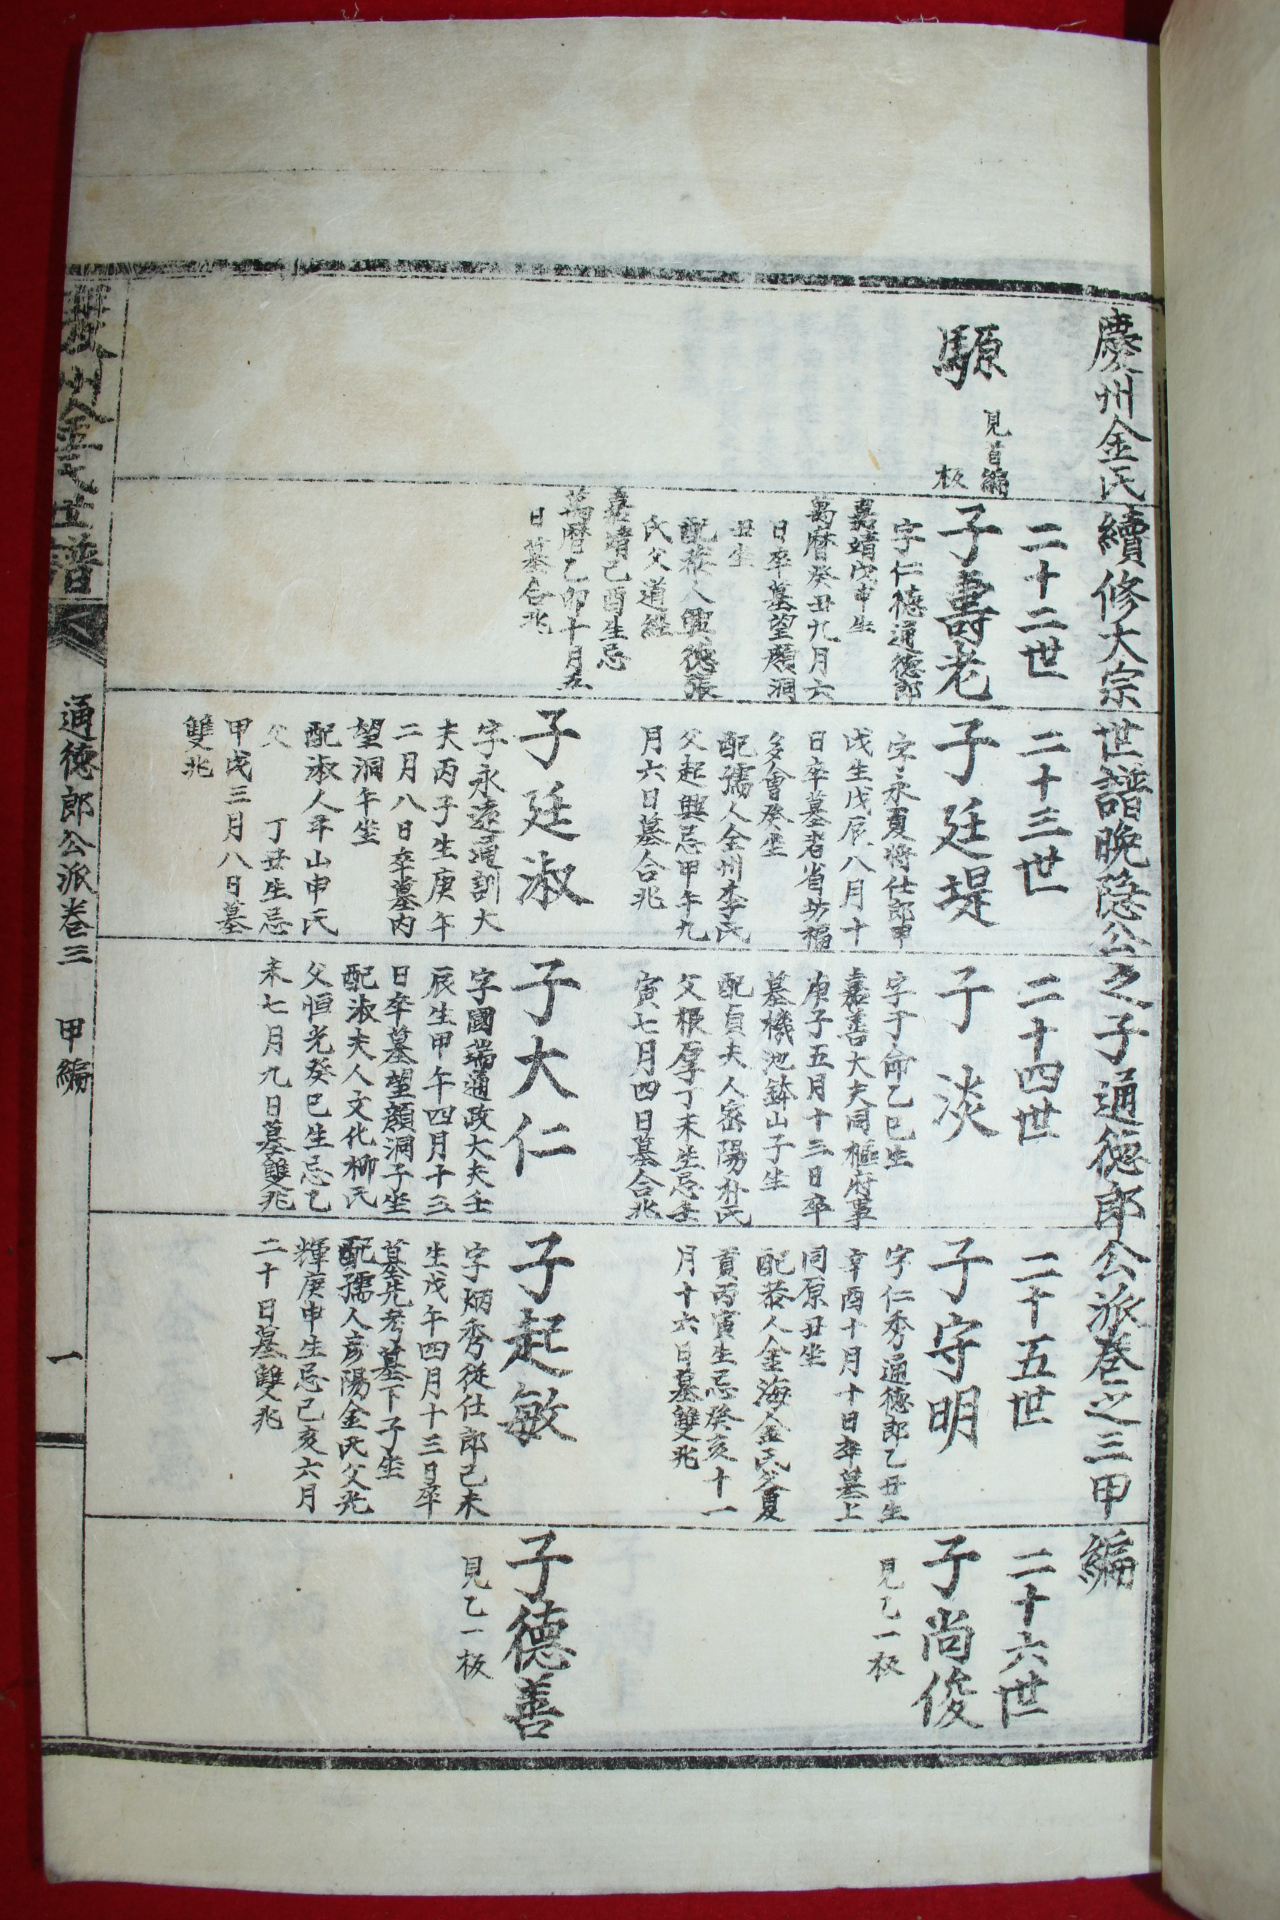 慶州金氏續修大宗世譜晩隱公之子通德郎公派卷之三甲編
騵
見首編
板
二十二世
子壽老
字仁德通德郎
嘉靖戊申生
萬曆癸丑九月六
日卒墓望顔洞
丑坐
配恭人興德張
氏父道經
嘉靖己酉生忌
萬曆乙卯十月五
日墓合兆
二十三世
子廷堤
字永夏將仕郎甲
戌生戊辰八月十
日卒墓者省坊福
多會癸坐
配孺人全州李氏
父起興忌甲午九
月六日墓合兆
子廷淑
字永遠通訓大
夫丙子生庚午
二月八日卒墓內
望洞午坐
配淑人平山申氏
父 丁丑生忌
甲戌三月八日墓
雙兆
二十四世
子淡
字子命乙巳生
嘉善大夫同樞府事
庚子五月十三日卒
墓機池鉢山子坐
配貞夫人密陽朴氏
父根厚丁未生忌壬
寅七月四日墓合兆
子大仁
字國端通政大夫壬
辰生甲午四月十三
日卒墓望顔洞子坐
配淑夫人文化柳氏
父恒光癸巳生忌乙
未七月九日墓雙兆
二十五世
子守明
字仁秀通德郎乙丑生
辛酉十月十日卒墓上
同原丑坐
配恭人金海金氏父夏
貢丙寅生忌癸亥十一
月十六日墓雙兆
子起敏
字炳秀從仕郎己未
生戊午四月十三日卒
墓先考墓下子坐
配孺人彦陽金氏父光
輝庚申生忌己亥六月
二十日墓雙兆
二十六世
子尚俊
見乙一板
子德善
見乙一板
慶州金氏世譜
通德郎公派卷三 甲編
一